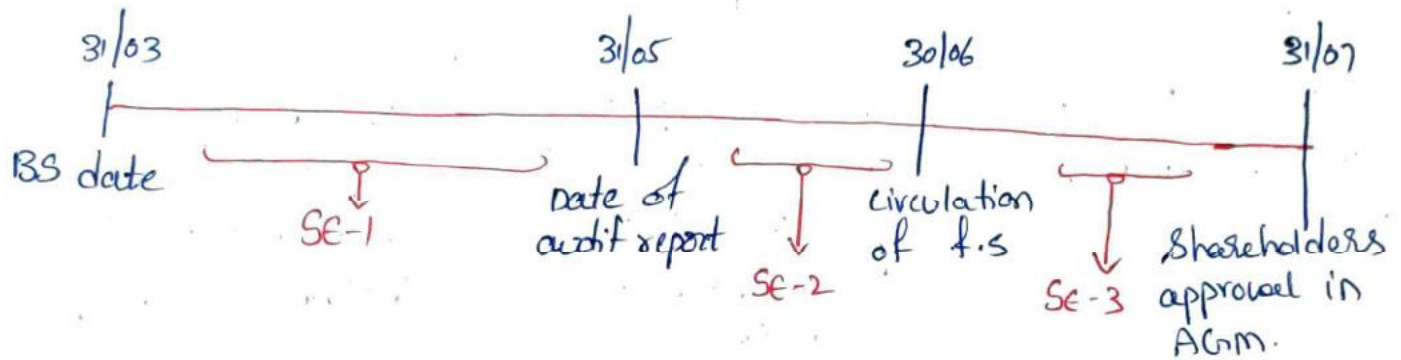 31/03 31/05 30/06 31/07
BS date
SE-1
Date of
audit report
SE-2
Circulation
of f.s
SE-3
Shareholders
approval in
AGM.